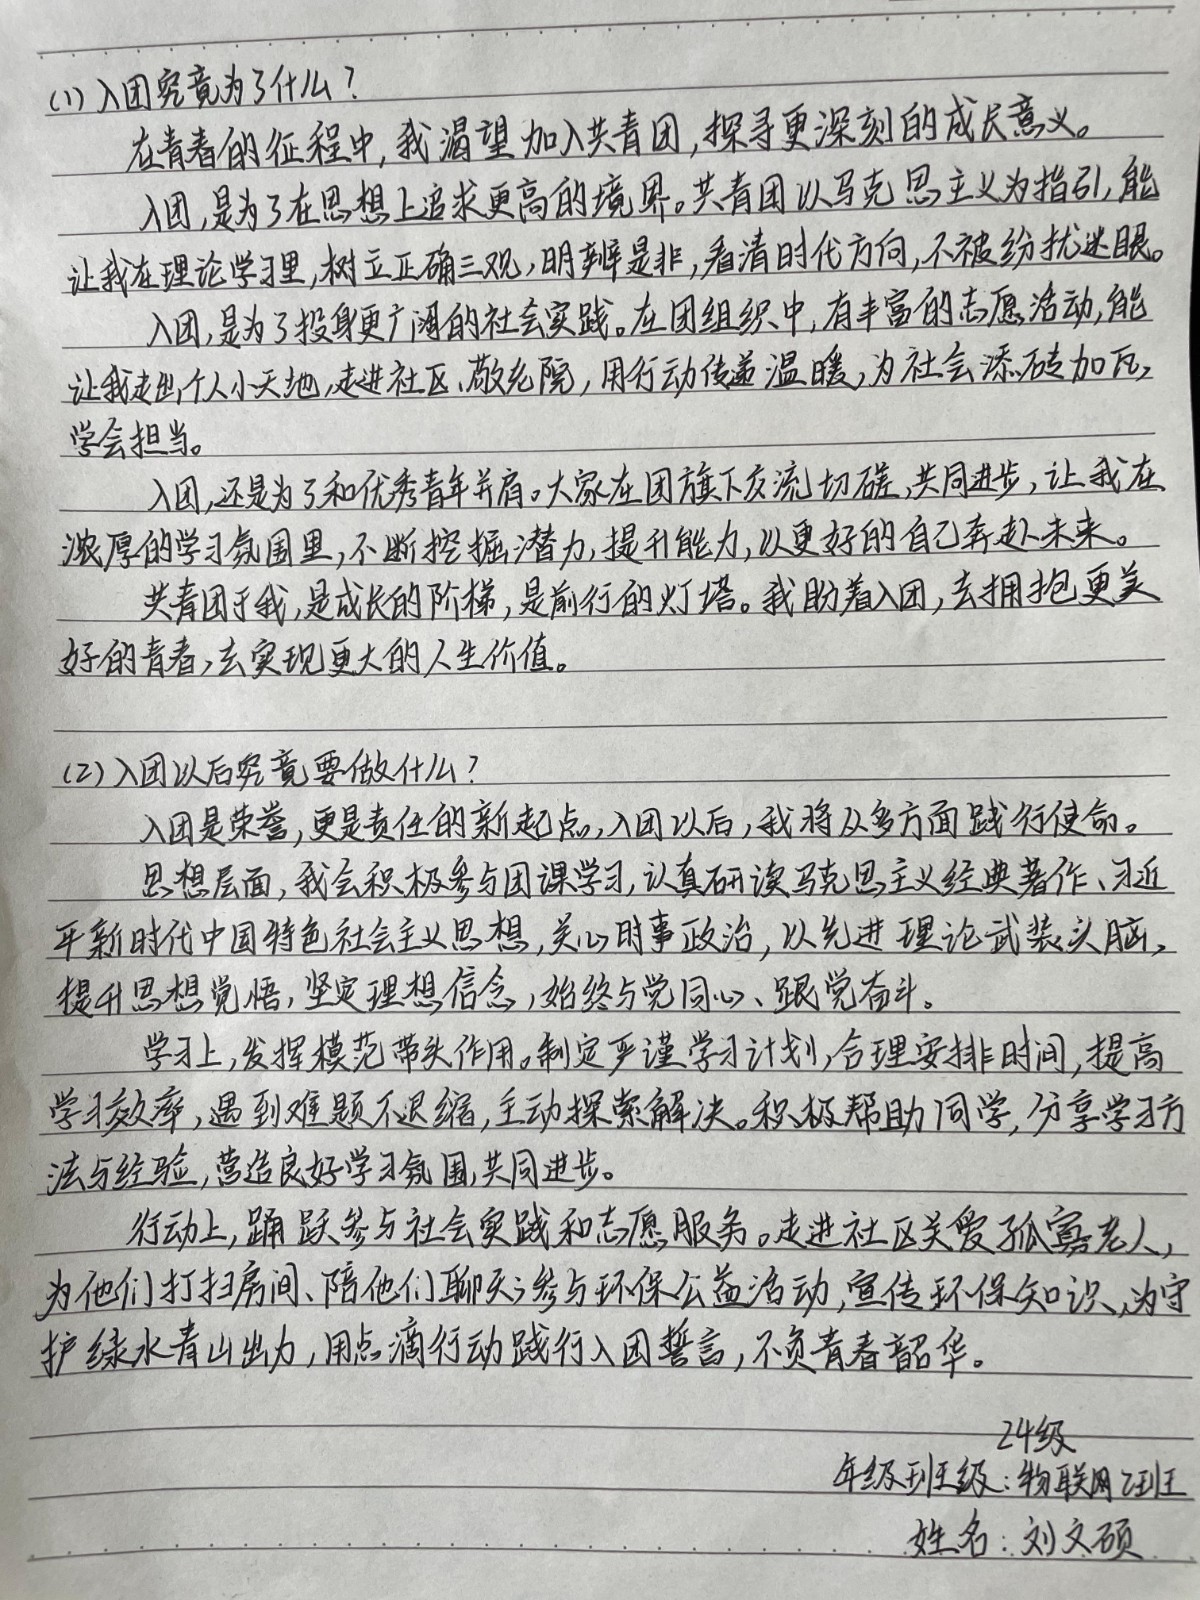 (1)入团究竟为了什么?
在青春的征程中,我渴望加入共青团,探寻更深刻的成长意义。
入团,是为了在思想上追求更高的境界。共青团以马克思主义为指引,能
让我在理论学习里,树立正确三观,明辨是非,看清时代方向,不被纷扰迷眼。
入团,是为了投身更广阔的社会实践。在团组织中,有丰富的志愿活动,能
让我走出个人小天地,走进社区、敬老院,用行动传递温暖,为社会添砖加瓦,
学会担当。
入团,还是为了和优秀青年并肩。大家在团旗下交流切磋,共同进步,让我在
浓厚的学习氛围里,不断挖掘潜力,提升能力,以更好的自己奔赴未来。
共青团于我,是成长的阶梯,是前行的灯塔。我盼着入团,去拥抱更美
好的青春,去实现更大的人生价值。
(2)入团以后究竟要做什么?
入团是荣誉,更是责任的新起点,入团以后,我将从多方面践行使命。
思想层面,我会积极参与团课学习,认真研读马克思主义经典著作、习近
平新时代中国特色社会主义思想,关心时事政治,以先进理论武装头脑,
提升思想觉悟,坚定理想信念,始终与党同心、跟党奋斗。
学习上,发挥模范带头作用。制定严谨学习计划,合理安排时间,提高
学习效率,遇到难题不退缩,主动探索解决。积极帮助同学,分享学习方
法与经验,营造良好学习氛围,共同进步。
行动上,踊跃参与社会实践和志愿服务。走进社区关爱孤寡老人,
为他们打扫房间、陪他们聊天;参与环保公益活动,宣传环保知识,为守
护绿水青山出力,用点滴行动践行入团誓言,不负青春韶华。
24级
年级班级:物联网2班
姓名:刘文硕